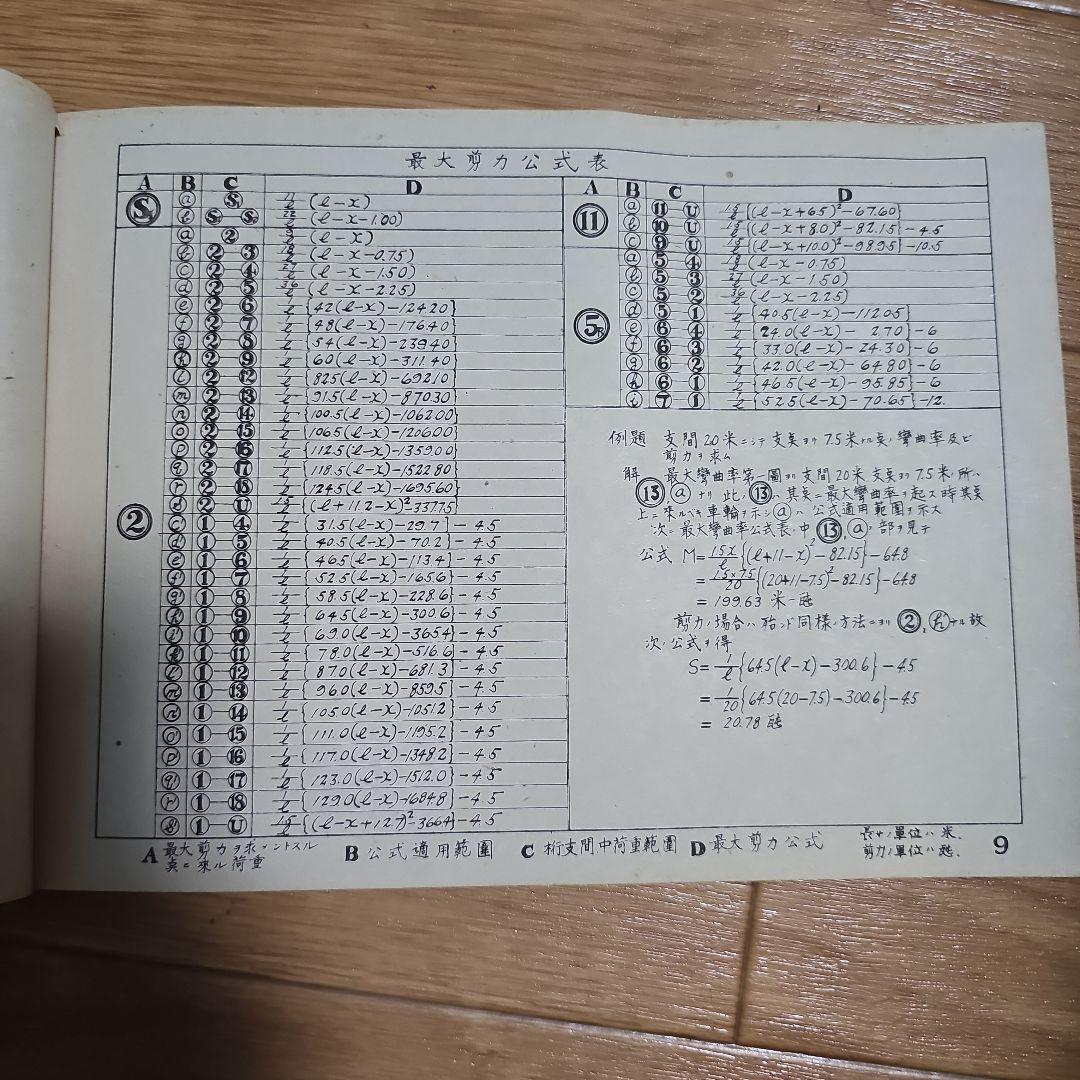 最大剪力公式表
A B C D
S ⓐ S 11/ℓ (ℓ-x)
ⓑ S S 22/ℓ (ℓ-x-1.00)
2 ⓐ 2 9/ℓ (ℓ-x)
ⓑ 2 3 18/ℓ (ℓ-x-0.75)
ⓒ 2 4 27/ℓ (ℓ-x-1.50)
ⓓ 2 5 36/ℓ (ℓ-x-2.25)
ⓔ 2 6 1/ℓ {42(ℓ-x)-124.20}
ⓕ 2 7 1/ℓ {48(ℓ-x)-176.40}
ⓖ 2 8 1/ℓ {54(ℓ-x)-239.40}
ⓗ 2 9 1/ℓ {60(ℓ-x)-311.40}
ⓛ 2 12 1/ℓ {82.5(ℓ-x)-692.10}
ⓜ 2 13 1/ℓ {91.5(ℓ-x)-870.30}
ⓝ 2 14 1/ℓ {100.5(ℓ-x)-1062.00}
ⓞ 2 15 1/ℓ {106.5(ℓ-x)-1206.00}
ⓟ 2 16 1/ℓ {112.5(ℓ-x)-1359.00}
ⓠ 2 17 1/ℓ {118.5(ℓ-x)-1522.80}
ⓡ 2 18 1/ℓ {124.5(ℓ-x)-1695.60}
2 U 1.5/ℓ (ℓ+11.2-x)²-337.75
ⓒ' 1 4 1/ℓ { 31.5(ℓ-x)-29.7 } - 4.5
ⓓ' 1 5 1/ℓ { 40.5(ℓ-x)-70.2 } - 4.5
ⓔ' 1 6 1/ℓ { 46.5(ℓ-x)-113.4 } - 4.5
ⓕ' 1 7 1/ℓ { 52.5(ℓ-x)-165.6 } - 4.5
ⓖ' 1 8 1/ℓ { 58.5(ℓ-x)-228.6 } - 4.5
ⓗ' 1 9 1/ℓ { 64.5(ℓ-x)-300.6 } - 4.5
ⓘ' 1 10 1/ℓ { 69.0(ℓ-x)-365.4 } - 4.5
ⓚ' 1 11 1/ℓ { 78.0(ℓ-x)-516.6 } - 4.5
ⓛ' 1 12 1/ℓ { 87.0(ℓ-x)-681.3 } - 4.5
ⓜ' 1 13 1/ℓ { 96.0(ℓ-x)-859.5 } - 4.5
ⓝ' 1 14 1/ℓ { 105.0(ℓ-x)-1051.2 } - 4.5
ⓞ' 1 15 1/ℓ { 111.0(ℓ-x)-1195.2 } - 4.5
ⓟ' 1 16 1/ℓ { 117.0(ℓ-x)-1348.2 } - 4.5
ⓠ' 1 17 1/ℓ { 123.0(ℓ-x)-1512.0 } - 4.5
ⓡ' 1 18 1/ℓ { 129.0(ℓ-x)-1684.8 } - 4.5
ⓢ 1 U 1.5/ℓ {(ℓ-x+12.7)²-366.4} - 4.5
A B C D
11 ⓐ 11 U 1.5/ℓ {(ℓ-x+6.5)²-67.60}
ⓑ 10 U 1.5/ℓ {(ℓ-x+8.0)²-82.15} - 4.5
ⓒ 9 U 1.5/ℓ {(ℓ-x+10.0)²-98.95} - 10.5
5R ⓐ 5 4 18/ℓ (ℓ-x-0.75)
ⓑ 5 3 27/ℓ (ℓ-x-1.50)
ⓒ 5 2 36/ℓ (ℓ-x-2.25)
ⓓ 5 1 1/ℓ {40.5(ℓ-x)-112.05}
ⓔ 6 4 1/ℓ {24.0(ℓ-x)- 2.70} - 6
ⓕ 6 3 1/ℓ {33.0(ℓ-x)- 24.30} - 6
ⓖ 6 2 1/ℓ {42.0(ℓ-x)- 64.80} - 6
ⓗ 6 1 1/ℓ {46.5(ℓ-x)- 95.85} - 6
ⓘ 7 1 1/ℓ {52.5(ℓ-x)- 70.65} - 12.
例題 支間20米ニシテ支奌ヨリ7.5米ナル奌ノ彎曲率及ビ
剪力ヲ求ム
解 最大彎曲率第一圖ヨリ支間20米支奌ヨリ7.5米ノ所ハ
⑬ⓐナリ 此ノ⑬ハ其奌ニ最大彎曲率ヲ起ス時其奌
上ニ來ルベキ車輪ヲ示シⓐハ公式適用範圍ヲ示ス
次ニ最大彎曲率公式表ノ中⑬,ⓐノ部ヲ見テ
公式 M=1.5x/ℓ{(ℓ+11-x)²-82.15}-64.8
=1.5×7.5/20{(20+11-7.5)²-82.15}-64.8
= 199.63 米-瓲
剪力ノ場合ハ殆ンド同樣ノ方法ニヨリ②,ⓗ'ナル故
次ノ公式ヲ得
S=1/ℓ{64.5(ℓ-x)-300.6}-4.5
=1/20{64.5(20-7.5)-300.6}-4.5
= 20.78 瓲
A 最大剪力ヲ求メントスル
奌ニ來ル荷重
B 公式適用範圍 C 桁支間中荷重範圍 D 最大剪力公式
長サノ單位ハ米.
剪力ノ單位ハ瓲.
9